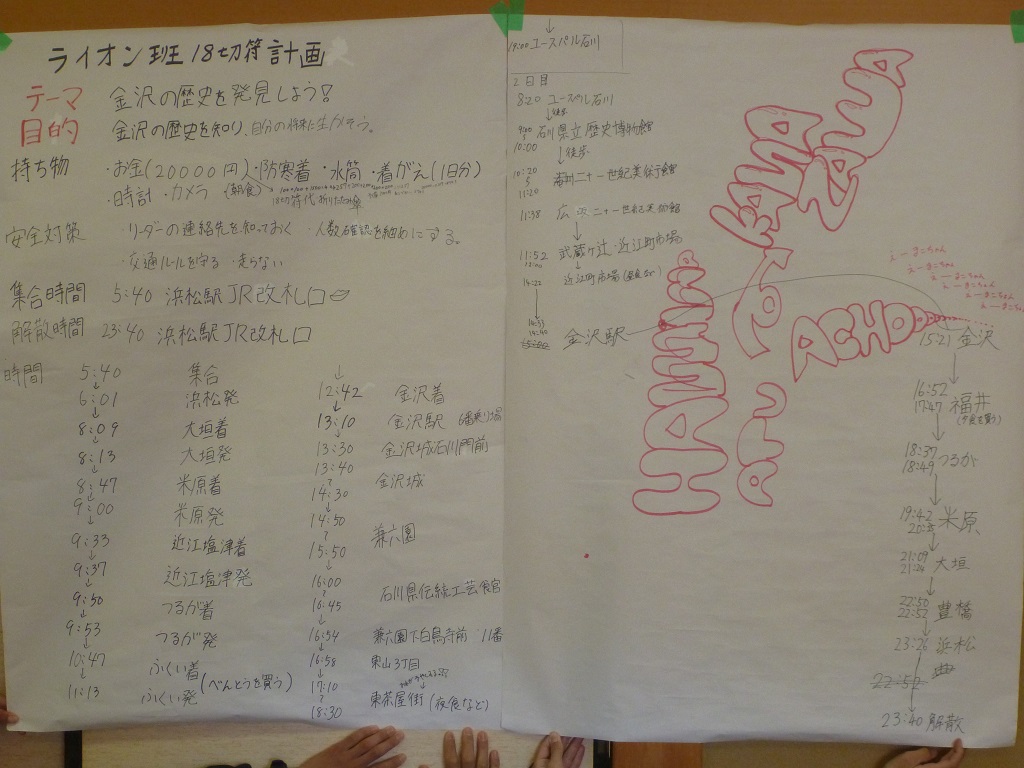 ライオン班 18切符計画
テーマ 金沢の歴史を発見しよう!
目的 金沢の歴史を知り、自分の将来に生かそう。
持ち物 ・お金(20000円)・防寒着・水筒・着がえ(1日分)
・時計 ・カメラ (朝食)
18切符代
安全対策 ・リーダーの連絡先を知っておく ・人数確認を細めにする。
・交通ルールを守る ・走らない
集合時間 5:40 浜松駅JR改札口
解散時間 23:40 浜松駅JR改札口
時間 5:40 集合
6:01 浜松発
8:09 大垣着
8:13 大垣発
8:47 米原着
9:00 米原発
9:33 近江塩津着
9:37 近江塩津発
9:50 つるが着
9:53 つるが発
10:47 ふくい着
(べんとうを買う)
11:13 ふくい発
12:42 金沢着
13:10 金沢駅
13:30 金沢城石川門前
13:40
金沢城
14:30
14:50
兼六園
15:50
16:00
石川県伝統工芸
16:45
16:54 兼六園下白鳥寺前:11番
16:58 東山3丁目
17:10
東茶屋街(夜食など)
18:30
19:00 ユースパル石川
2日目
8:20 ユースパル石川
徒歩
石川県立歴史博物館
10:00
徒歩
10:20
11:20
11:38 広坂二十一世紀美術館
11:52 武蔵ヶ辻・近江町市場
近江町市場
金沢駅
HAMAMATSU
KANAZAWA
ACHOO
えーまこちゃん
えーまこちゃん
えーまこちゃん
えーまこちゃん
えーまこちゃん
15:21 金沢
16:52
17:47 福井
(夕食を買う)
18:37
18:49 つるが
19:42 米原
21:09
大垣
22:50
22:52 豊橋
23:26 浜松
22:52
23:40 解散